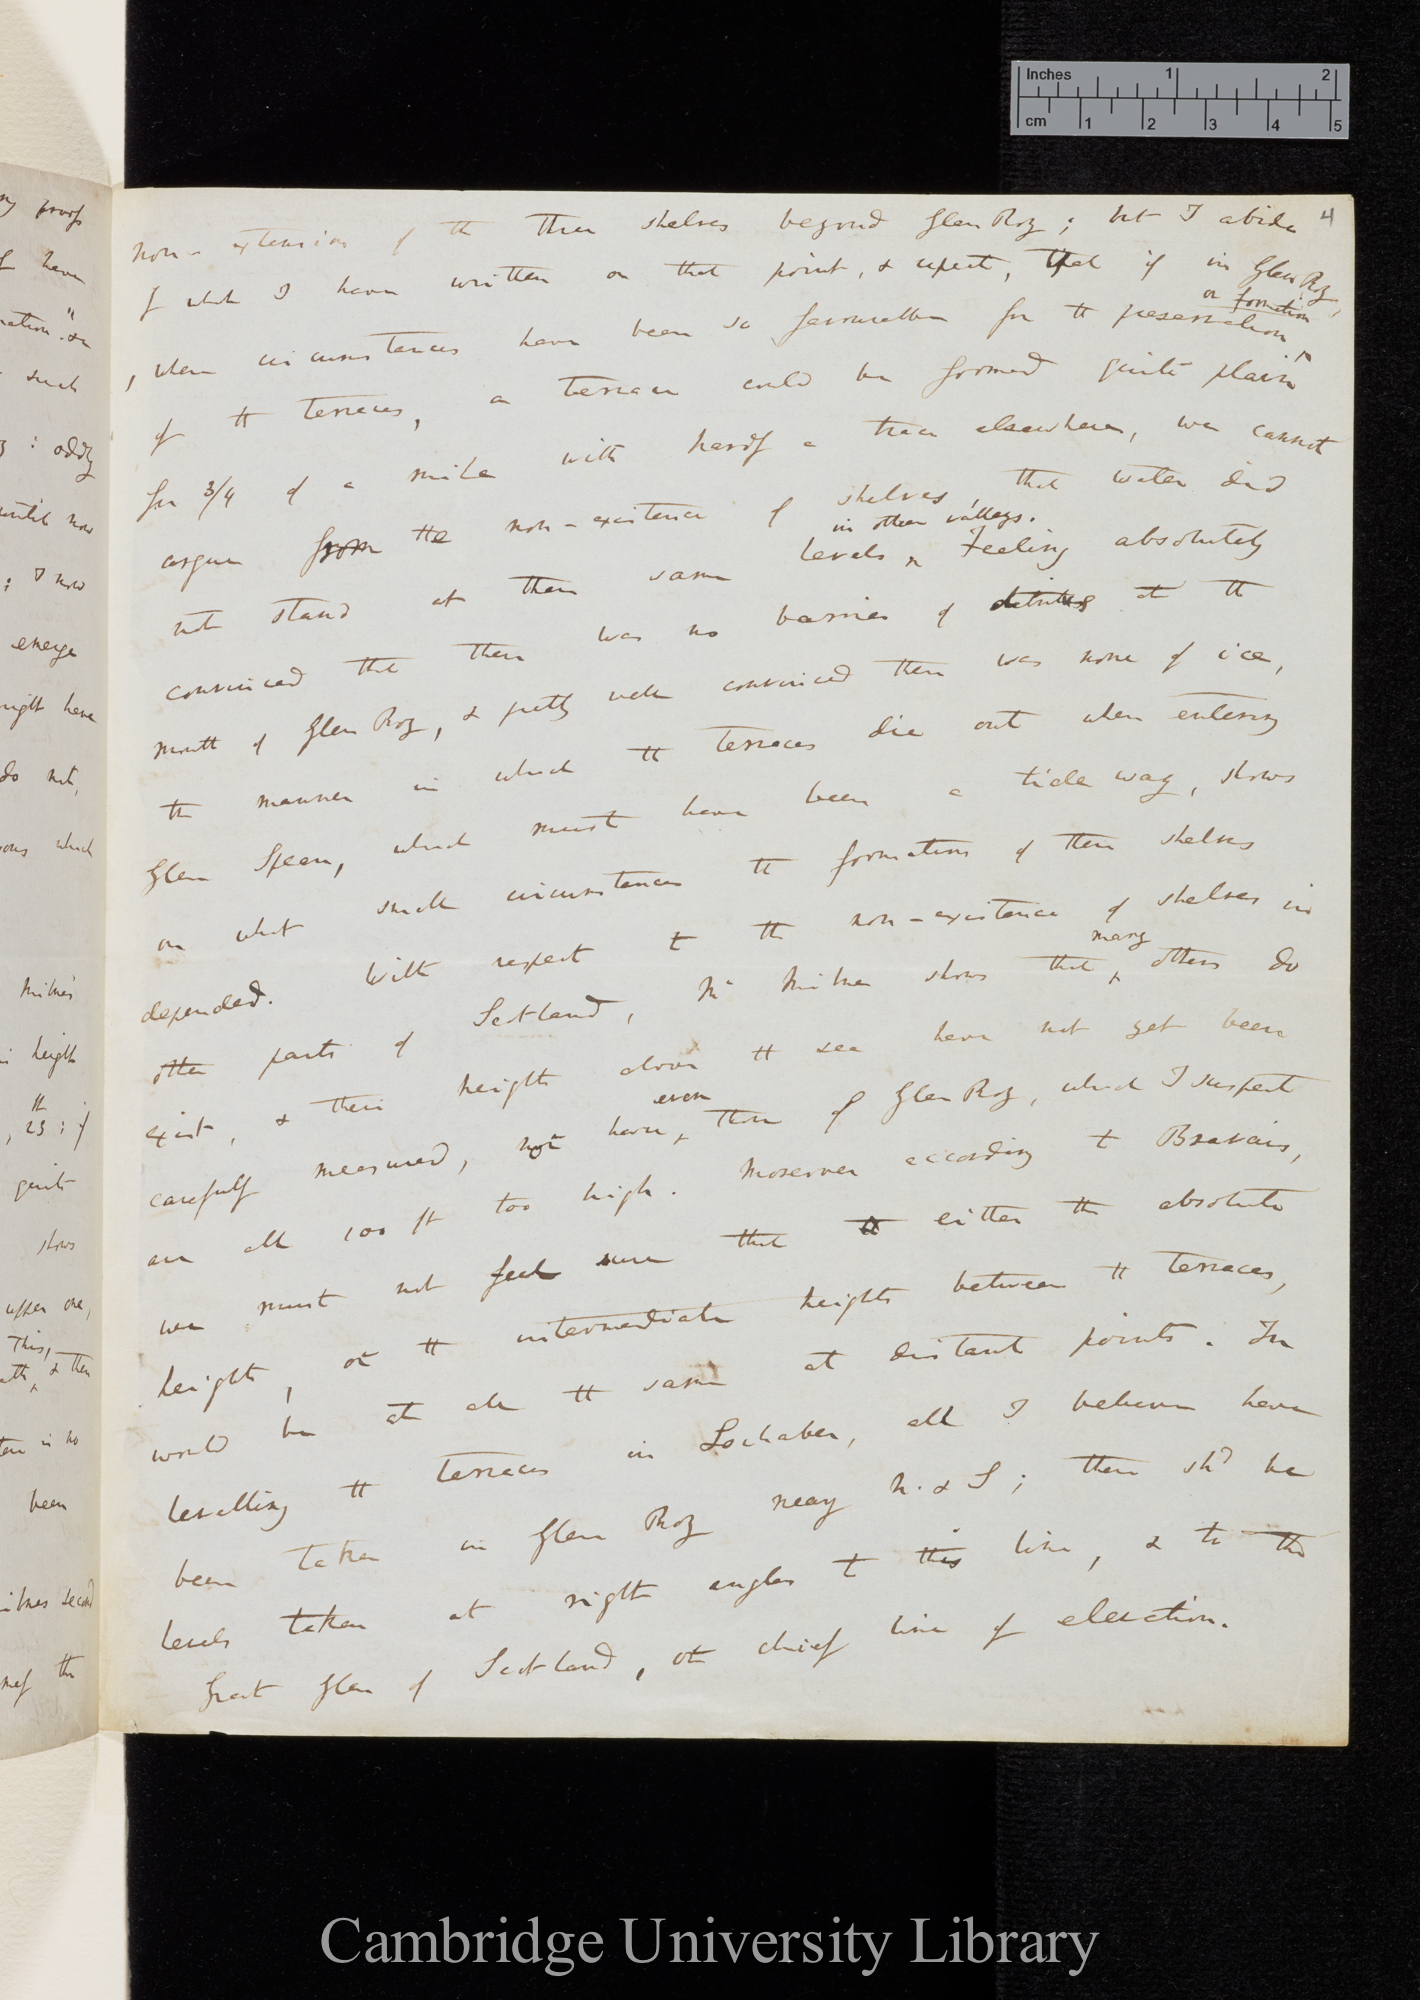 4
non-extension of the three shelves beyond Glen Roy; but I abide
by what I have written on that point, & repeat, that if in Glen Roy,
, where circumstances have been so favourable for the preservation or formation
of the terraces, a terrace could be formed quite plain
for 3/4 of a mile with hardly a trace elsewhere, we cannot
argue from the non-existence of shelves, that water did
not stand at these same levels in other valleys. Feeling absolutely
convinced that there was no barrier of detritus at the
mouth of Glen Roy, & pretty well convinced there was none of ice,
the manner in which the terraces die out when entering
Glen Spean, which must have been a tide way, shows
on what small circumstances the formation of these shelves
depended. With respect to the non-existence of shelves in
other parts of Scotland, Mr Milne shows that many others do
exist, & their heights above the sea have not yet been
carefully measured, nor have even those of Glen Roy, which I suspect
are all 100 ft too high. Moreover according to Bravais,
we must not feel sure that either the absolute
height, or the intermediate heights between the terraces,
would be at all the same at distant points. In
levelling the terraces in Lochaber, all I believe have
been taken in Glen Roy nearly N. & S; there shd be
levels taken at right angles to this line, & to the
Great Glen of Scotland, or chief line of elevation.
proofs
have
such
: oddly
until now
: I now
emerge
might have
do not,
which
Milne's
height
quite
shows
upper one,
This,
& then
is no
been
Milnes second
the
Inches 1 2
cm 1 2 3 4 5
Cambridge University Library